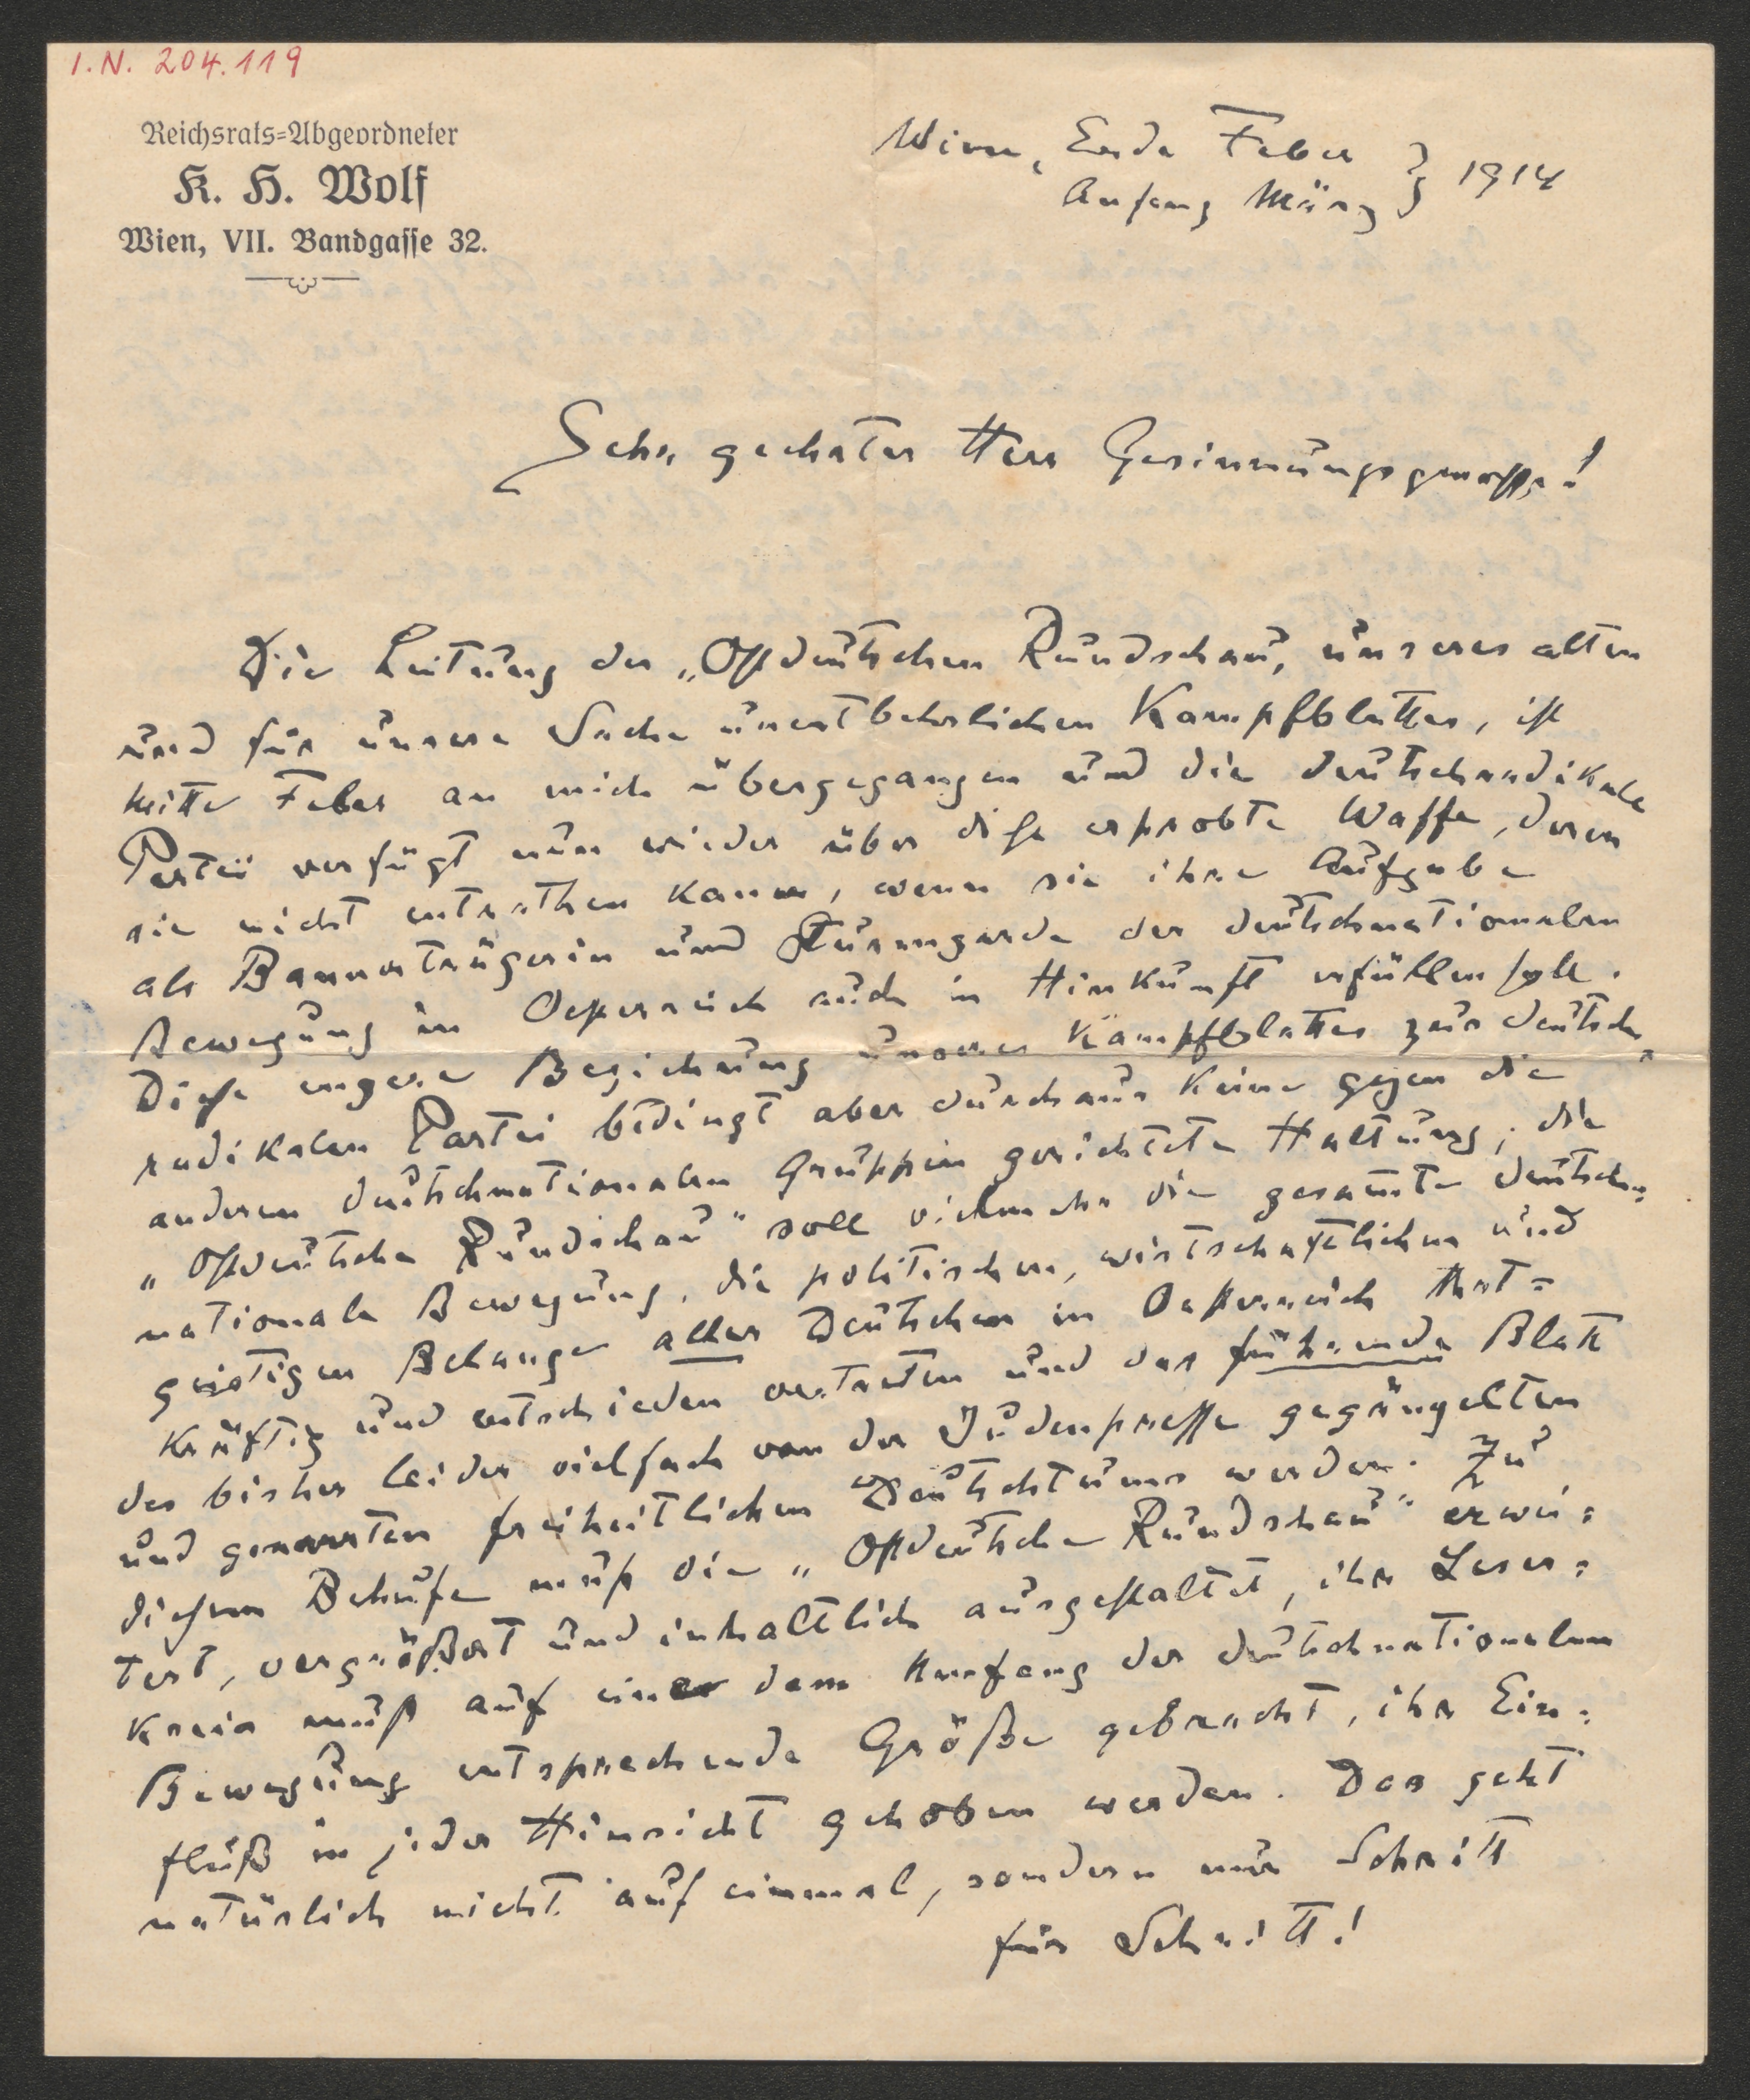 I.N. 204.119
Reichsrats=Abgeordneter
K. H. Wolf
Wien, VII. Bandgasse 32.
Wien, Ende Feber
Anfang März } 1914
Sehr geehrter Herr Gesinnungsgenosse!
Die Leitung der „Ostdeutschen Rundschau", unseres alten
und für unsere Sache unentbehrlichen Kampfblattes, ist
mitte Feber an mich übergegangen und die deutschradikale
Partei verfügt nun wieder über diese erprobte Waffe, deren
sie nicht entrathen kann, wenn sie ihre Aufgabe
als Bannerträgerin und Sturmgarde der deutschnationalen
Bewegung in Oesterreich auch in Hinkunft erfüllen soll.
Diese engere Beziehung unseres Kampfblattes zur deutsch=
radikalen Partei bedingt aber durchaus keine gegen die
anderen deutschnationalen Gruppen gerichtete Haltung; die
„Ostdeutsche Rundschau" soll vielmehr die gesamte deutsch=
nationale Bewegung, die politischen, wirtschaftlichen und
geistigen Belange aller Deutschen in Oesterreich that=
kräftig und entschieden vertreten und das führende Blatt
des bisher leider vielfach von der Judenpresse gegängelten
und genarrten freiheitlichen Deutschtums werden. Zu
diesem Behufe muß die „Ostdeutsche Rundschau" erwei=
tert, vergrößert und inhaltlich ausgestaltet, ihr Leser=
kreis muß auf eine dem Umfang der deutschnationalen
Bewegung entsprechende Größe gebracht, ihr Ein=
fluß in jeder Hinsicht gehoben werden. Das geht
natürlich nicht auf einmal, sondern nur Schritt
für Schritt!